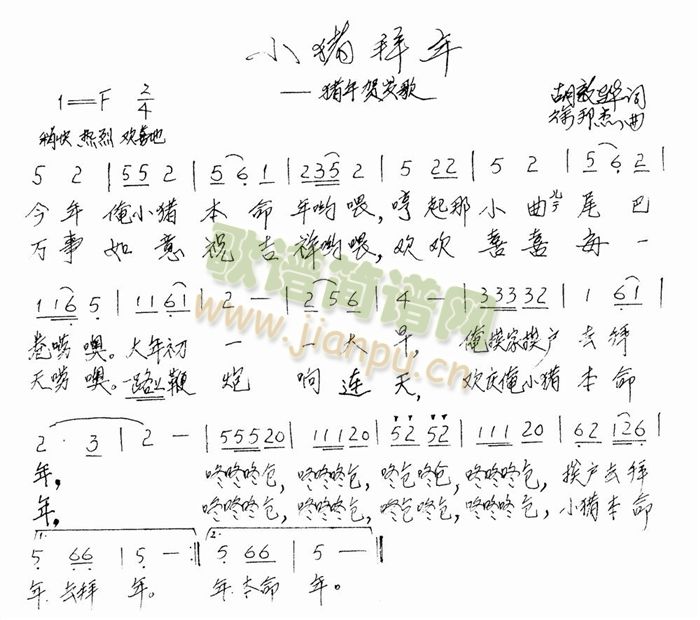 小猪拜年
——猪年贺岁歌
1=F 2/4
胡敦华词
徐邦杰曲
畅快 热烈 欢喜地
5 2 | 55 2 | 5 6 1 | 235 2 | 5 22 | 5 2 | 5 6 2 |
今年 俺小猪 本命 年哟喂, 哼起那 小曲 尾巴
万事 如意 祝吉 祥哟喂, 欢欢 喜喜 每一
116 5 | 116 1 | 2 — | 2 5 6 | 4 — | 333 32 | 1 6 1 |
卷唠噢。大年初 一 一大 早, 俺挨家挨户 去拜
天唠噢。一路上鞭 炮 响连 天, 欢庆俺小猪 本命
2 · 3 | 2 — | 55520 | 11120 | 52 52 | 111 20 | 62 126 |
年, 咚咚咚仓, 咚咚咚仓, 咚仓咚仓, 咚咚咚仓, 挨户去拜
年, 咚咚咚仓, 咚咚咚仓, 咚仓咚仓, 咚咚咚仓, 小猪本命
1. 2.
5 66 | 5 — :‖ 5 66 | 5 — ‖
年 去拜 年。 年 本命 年。
歌谱简谱网
www.jianpu.cn